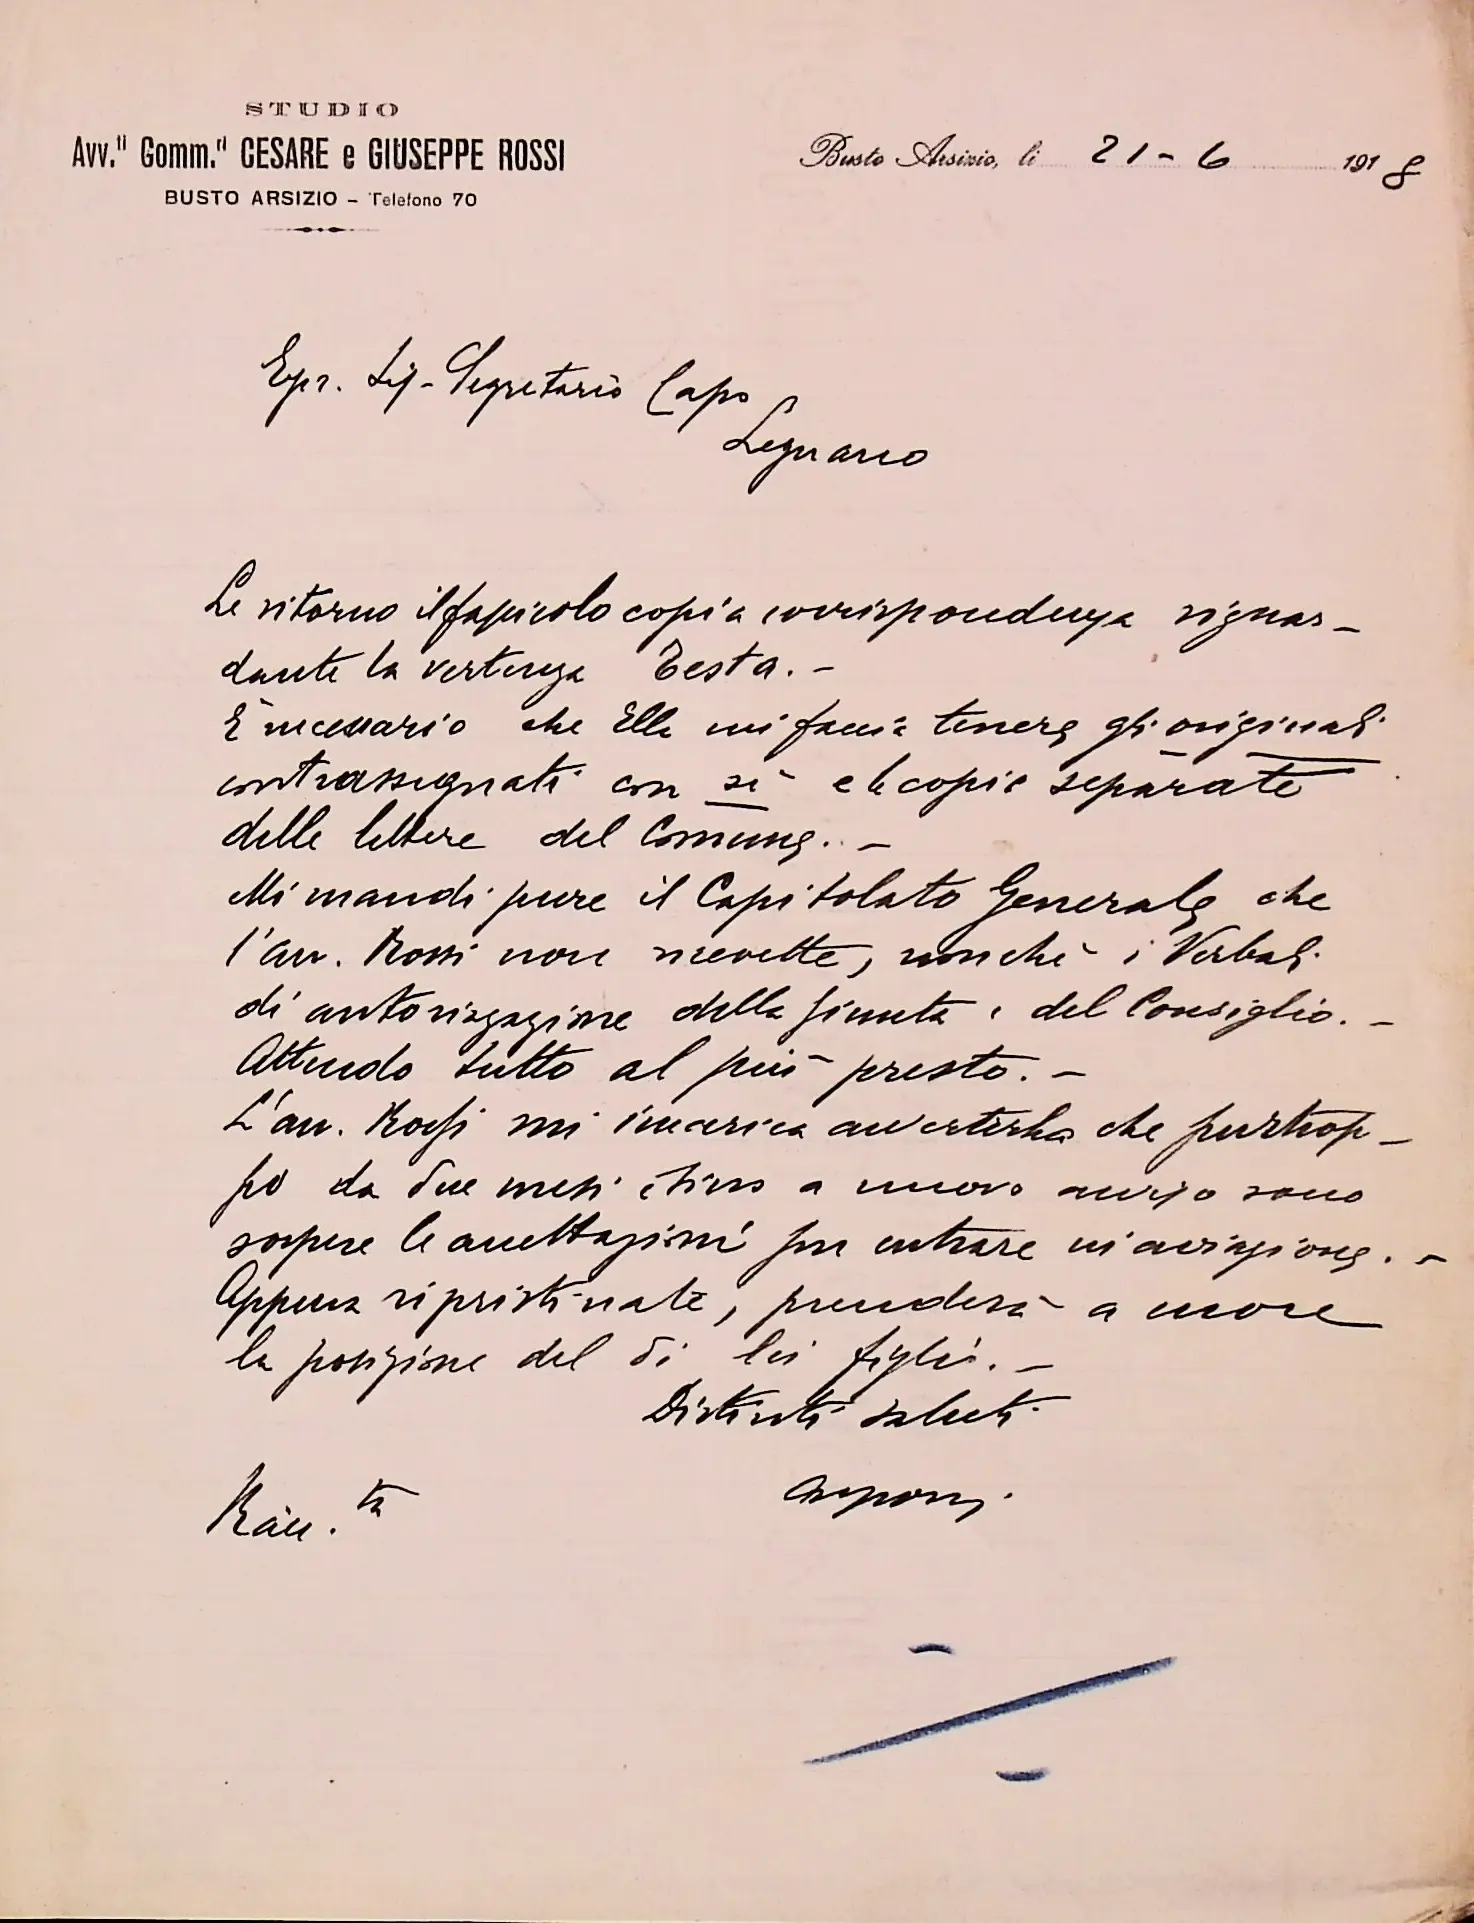 STUDIO
Avv.ti Comm.ri CESARE e GIUSEPPE ROSSI
BUSTO ARSIZIO – Telefono 70
Busto Arsizio, li 21-6 1918
Egr. Sig. Segretario Capo
Legnano
Le ritorno il fascicolo copia corrispondenza riguar-
dante la vertenza Testa. -
È necessario che Ella mi faccia tenere gli originali
contrassegnati con sì e le copie separate
delle lettere del Comune. -
Mi mandi pure il Capitolato Generale che
l'avv. Rossi non ricevette, nonchè i Verbali
di autorizzazione della Giunta e del Consiglio. -
Attendo tutto al più presto. -
L'avv. Rossi mi incarica avvertirla che purtrop-
po da due mesi e fino a nuovo avviso sono
sospese le accettazioni per entrare in aviazione. -
Appena ripristinate, prenderà a cuore
la posizione del di lei figlio. -
Distinti saluti
Racc.ta